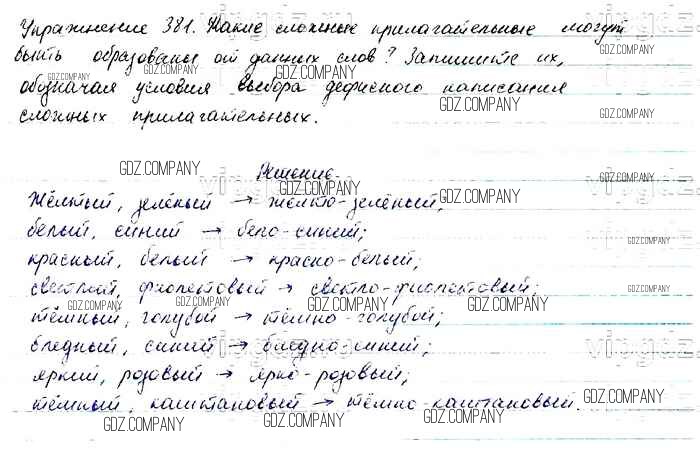 Упражнение 381. Какие сложные прилагательные могут
быть образованы от данных слов? Запишите их,
обозначая условия выбора дефисного написания
сложных прилагательных.
Решение
Жёлтый, зелёный → жёлто-зелёный;
белый, синий → бело-синий;
красный, белый → красно-белый;
светлый, фиолетовый → светло-фиолетовый;
тёмный, голубой → тёмно-голубой;
бледный, синий → бледно-синий;
яркий, розовый → ярко-розовый;
тёмный, каштановый → тёмно-каштановый.